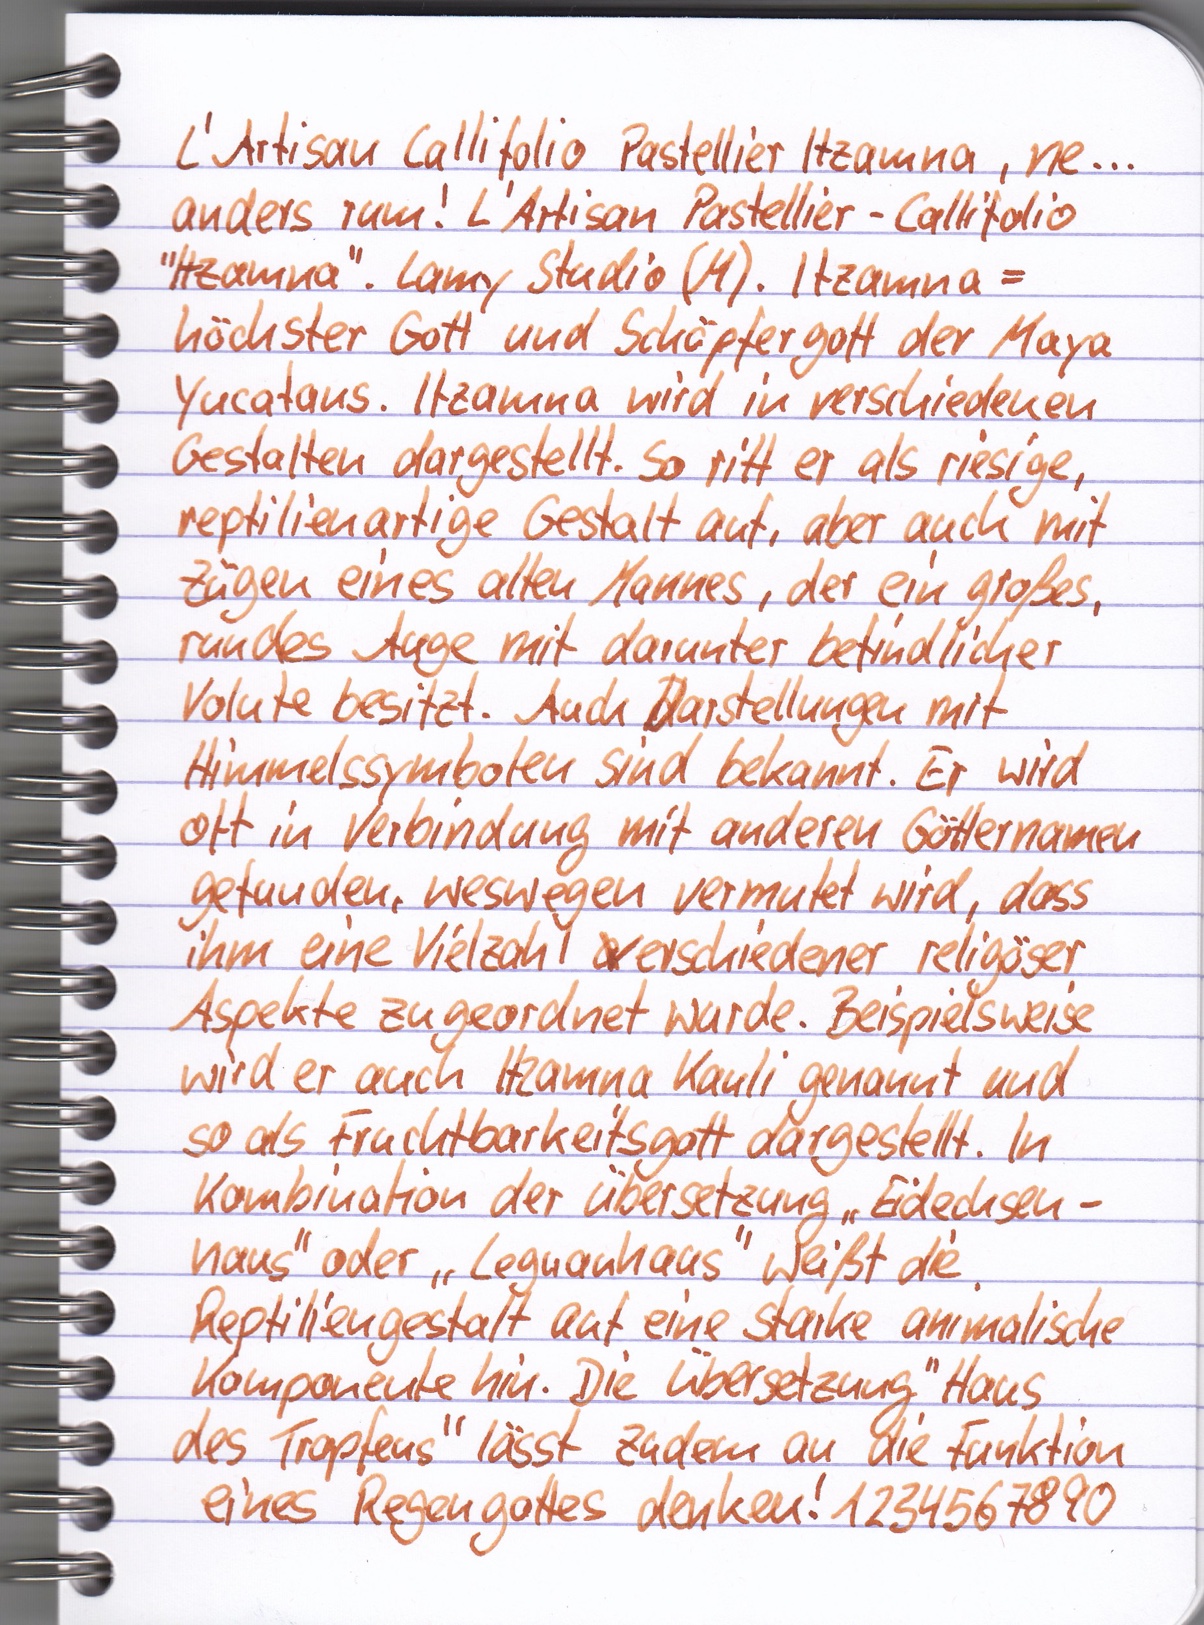 L'Artisan Callifolio Pastellier Itzamna, ne...
anders rum! L'Artisan Pastellier - Callifolio
"Itzamna". Lamy Studio (M). Itzamna =
höchster Gott und Schöpfergott der Maya
Yucatans. Itzamna wird in verschiedenen
Gestalten dargestellt. So tritt er als riesige,
reptilienartige Gestalt auf, aber auch mit
Zügen eines alten Mannes, der ein großes,
rundes Auge mit darunter befindlicher
Volute besitzt. Auch Darstellungen mit
Himmelssymbolen sind bekannt. Er wird
oft in Verbindung mit anderen Götternamen
gefunden, weswegen vermutet wird, dass
ihm eine Vielzahl verschiedener religöser
Aspekte zugeordnet wurde. Beispielsweise
wird er auch Itzamna Kauil genannt und
so als Fruchtbarkeitsgott dargestellt. In
Kombination der Übersetzung „Eidechsen-
haus" oder „Leguanhaus" weißt die
Reptiliengestalt auf eine starke animalische
Komponente hin. Die Übersetzung "Haus
des Tropfens" lässt zudem an die Funktion
eines Regengottes denken! 1234567890